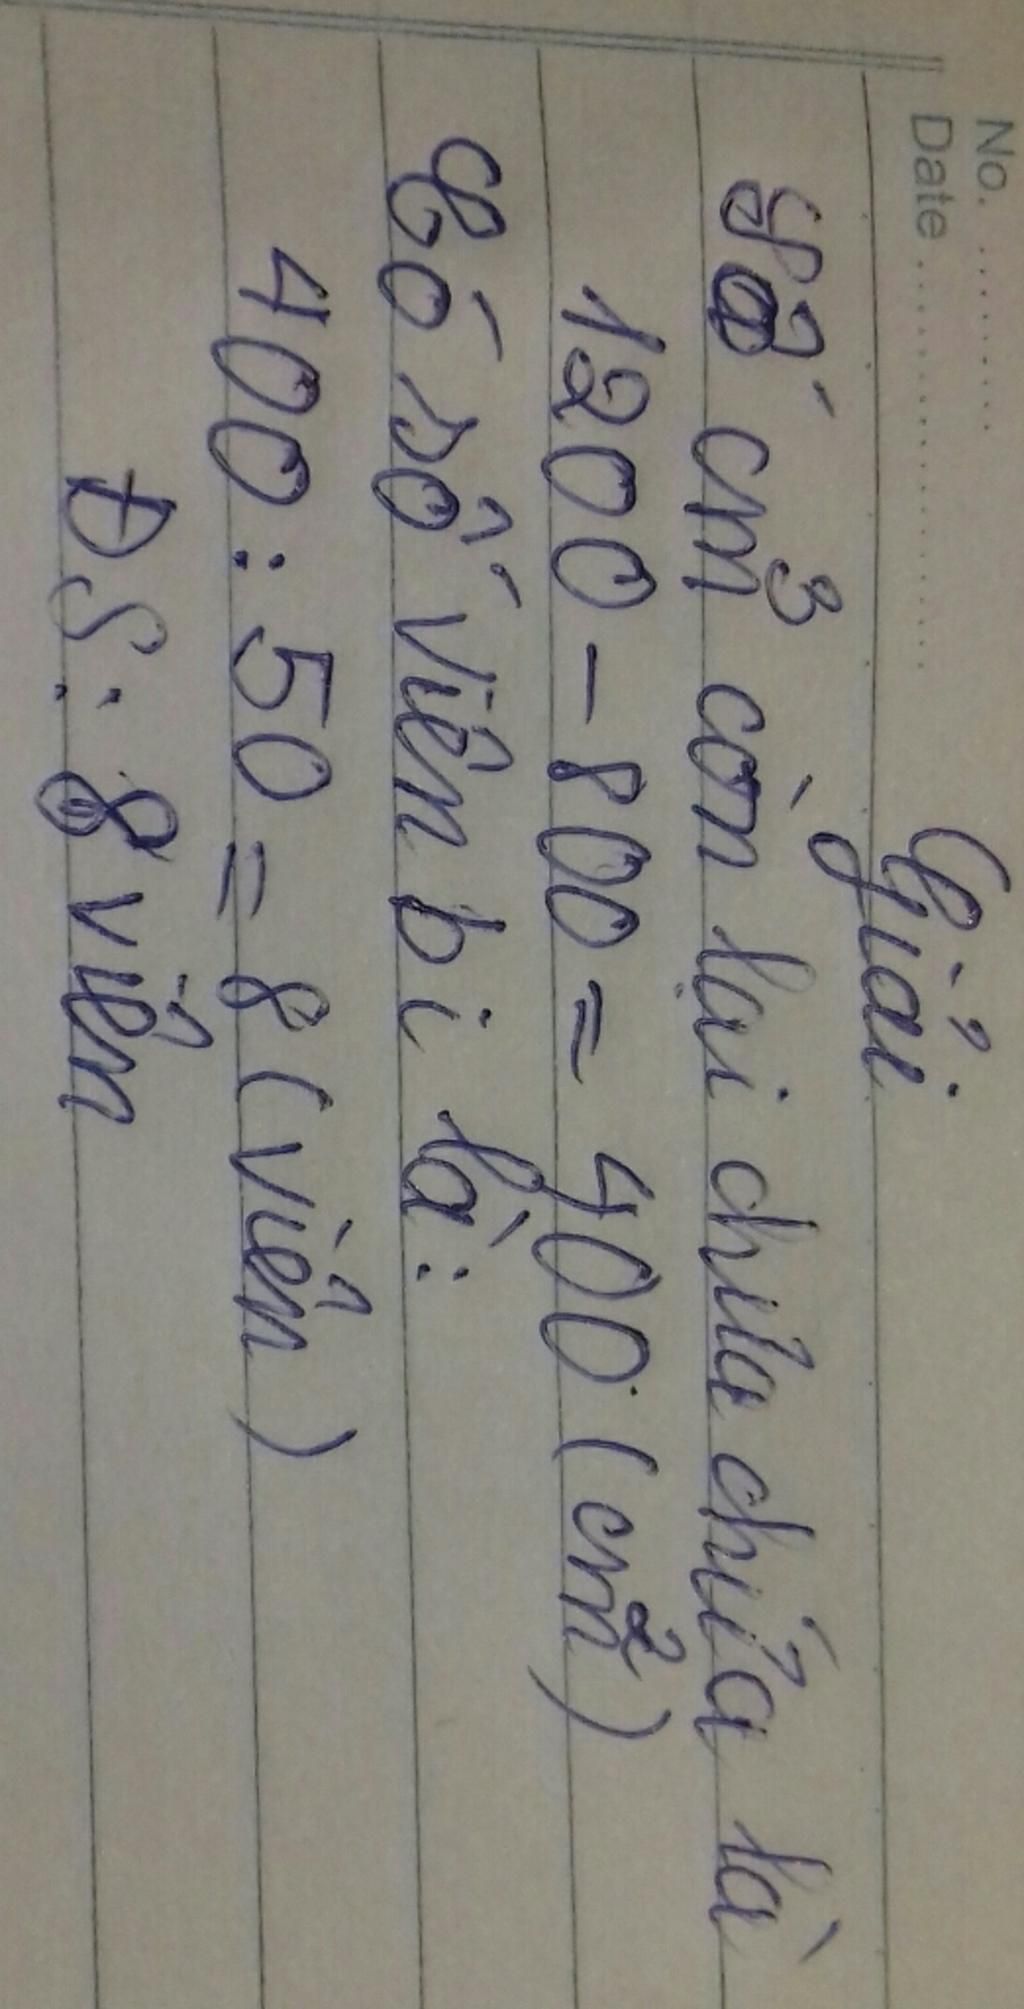 No. ............
Date ........................
Giải
Số cm³ còn lại chưa chứa là
1200 - 800 = 400 (cm²)
Có số viên bi là:
400 : 50 = 8 (viên)
ĐS: 8 viên